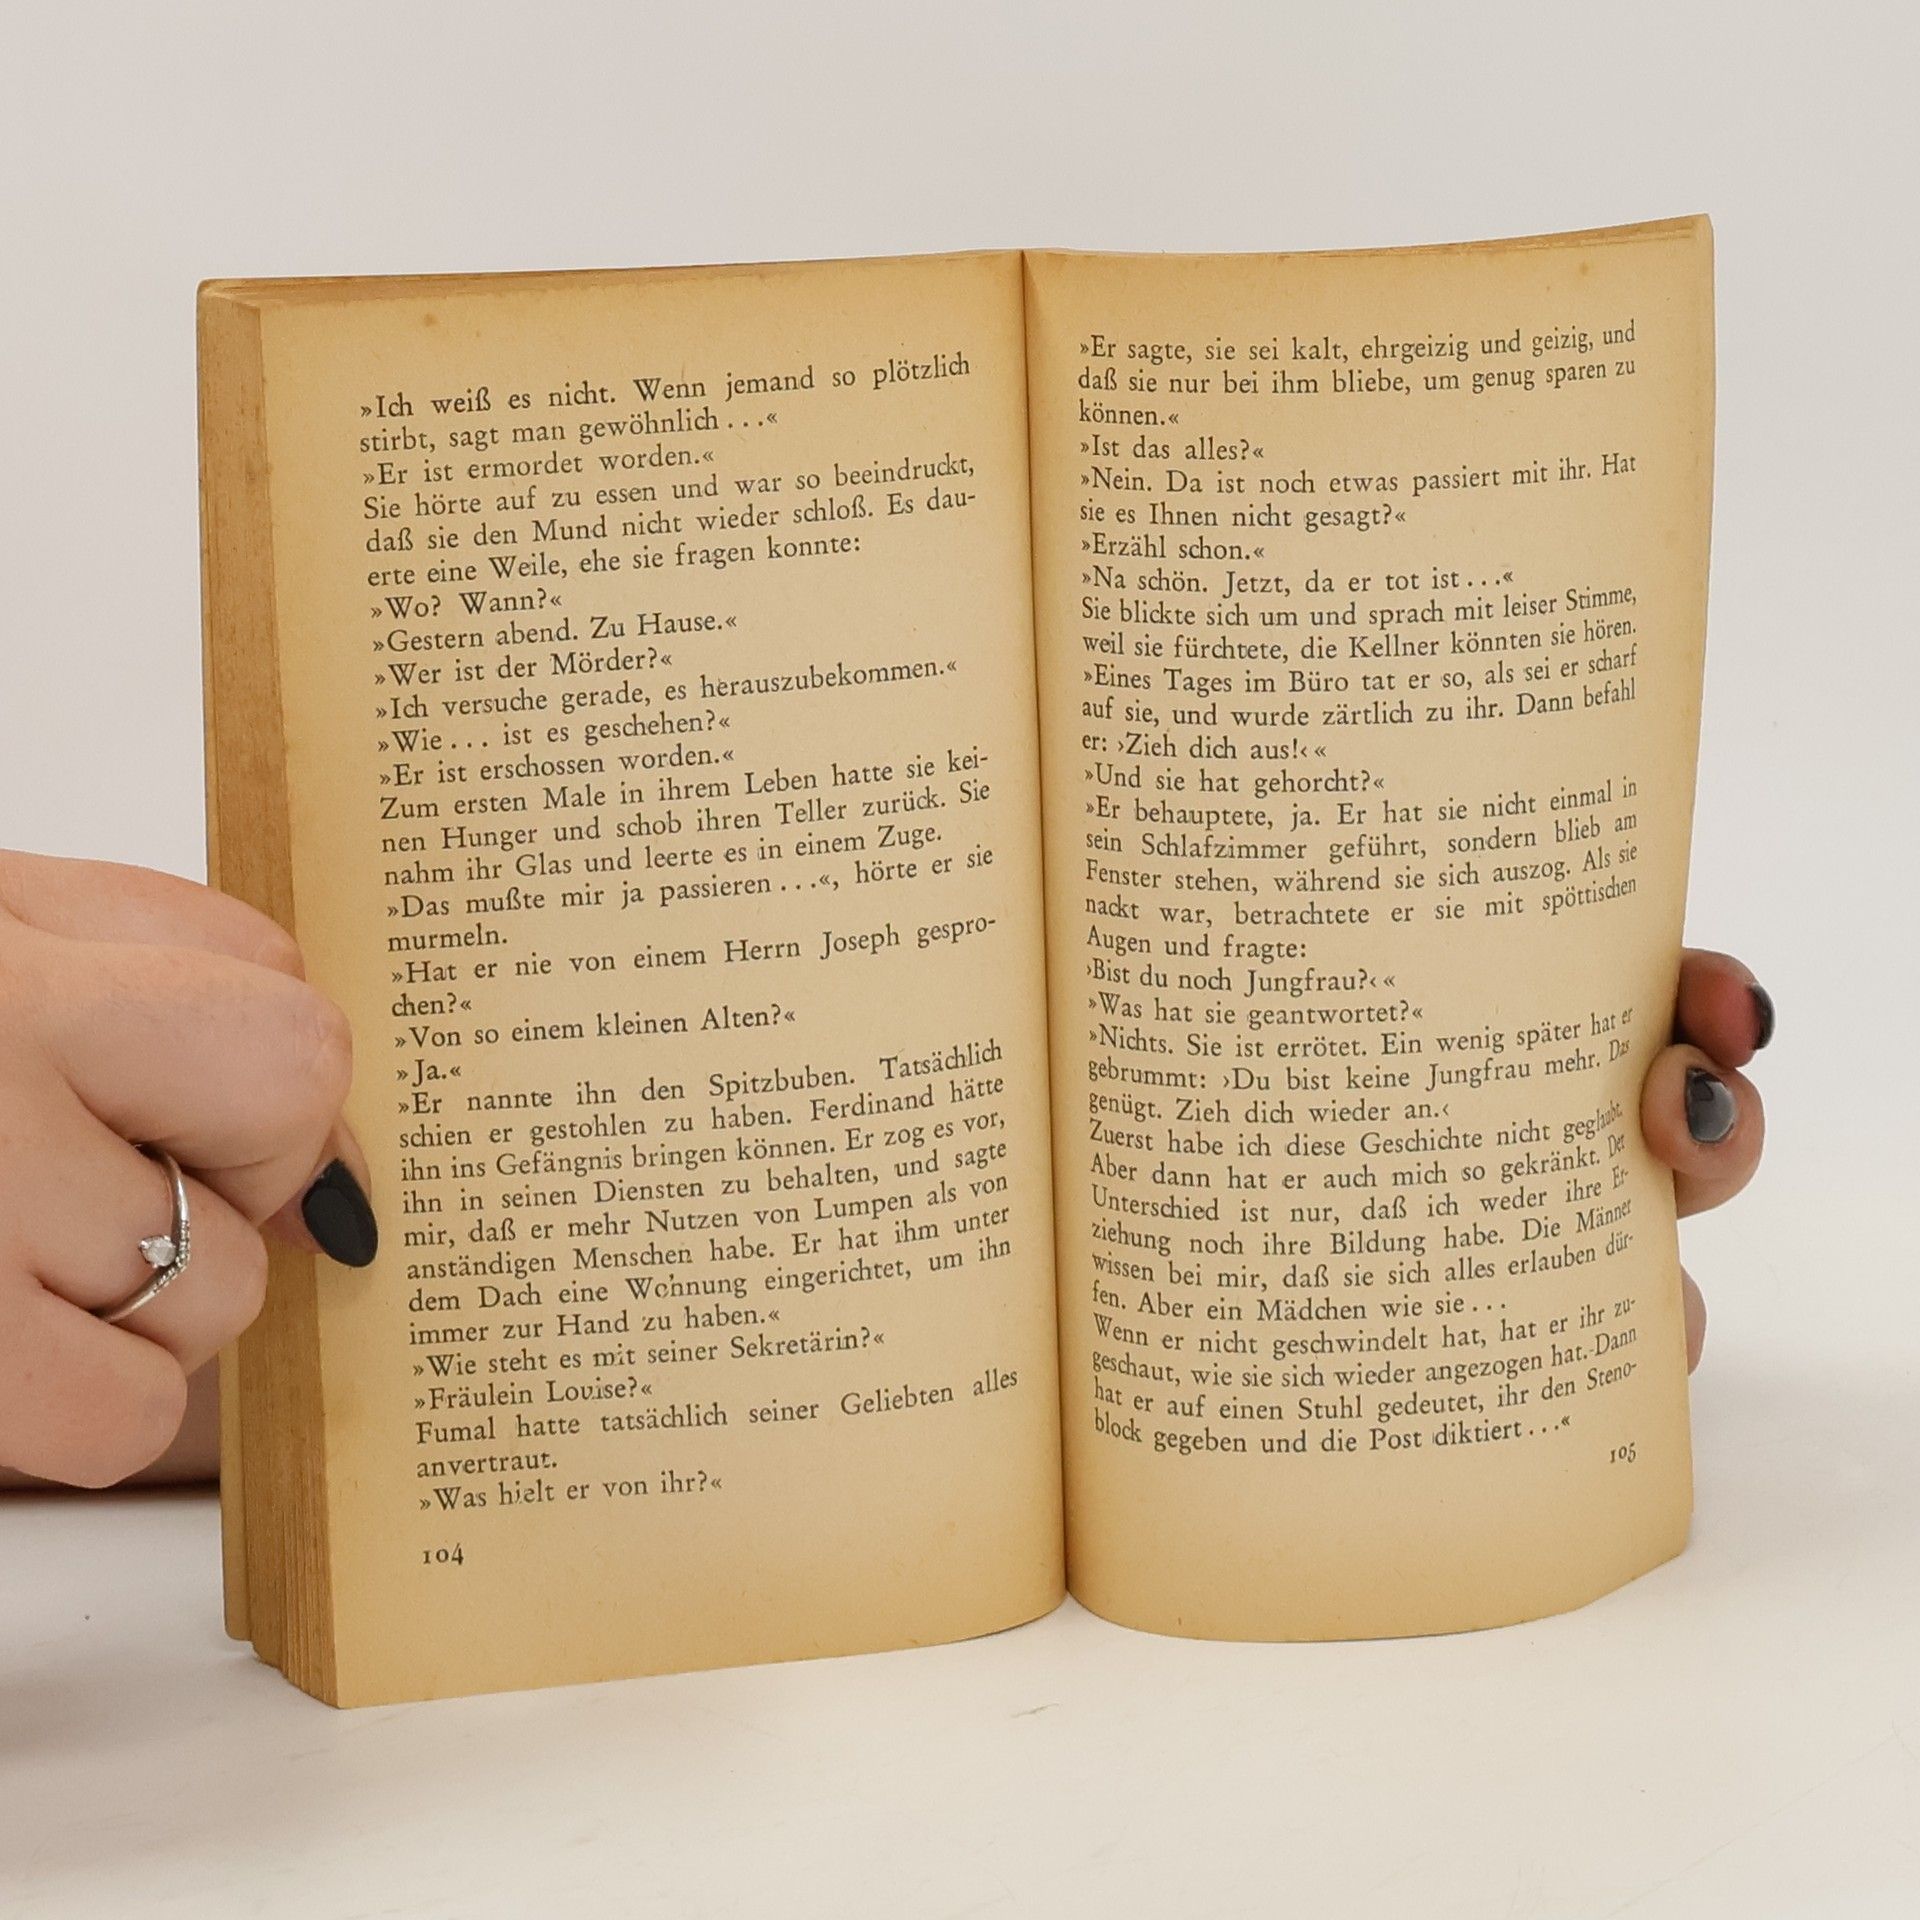 »Ich weiß es nicht. Wenn jemand so plötzlich
stirbt, sagt man gewöhnlich . . .«
»Er ist ermordet worden.«
Sie hörte auf zu essen und war so beeindruckt,
daß sie den Mund nicht wieder schloß. Es dau-
erte eine Weile, ehe sie fragen konnte:
»Wo? Wann?«
»Gestern abend. Zu Hause.«
»Wer ist der Mörder?«
»Ich versuche gerade, es herauszubekommen.«
»Wie . . . ist es geschehen?«
»Er ist erschossen worden.«
Zum ersten Male in ihrem Leben hatte sie kei-
nen Hunger und schob ihren Teller zurück. Sie
nahm ihr Glas und leerte es in einem Zuge.
»Das mußte mir ja passieren . . .«, hörte er sie
murmeln.
»Hat er nie von einem Herrn Joseph gespro-
chen?«
»Von so einem kleinen Alten?«
»Ja.«
»Er nannte ihn den Spitzbuben. Tatsächlich
schien er gestohlen zu haben. Ferdinand hätte
ihn ins Gefängnis bringen können. Er zog es vor,
ihn in seinen Diensten zu behalten, und sagte
mir, daß er mehr Nutzen von Lumpen als von
anständigen Menschen habe. Er hat ihm unter
dem Dach eine Wohnung eingerichtet, um ihn
immer zur Hand zu haben.«
»Wie steht es mit seiner Sekretärin?«
»Fräulein Louise?«
Fumal hatte tatsächlich seiner Geliebten alles
anvertraut.
»Was hielt er von ihr?«
104
»Er sagte, sie sei kalt, ehrgeizig und geizig, und
daß sie nur bei ihm bliebe, um genug sparen zu
können.«
»Ist das alles?«
»Nein. Da ist noch etwas passiert mit ihr. Hat
sie es Ihnen nicht gesagt?«
»Erzähl schon.«
»Na schön. Jetzt, da er tot ist . . .«
Sie blickte sich um und sprach mit leiser Stimme,
weil sie fürchtete, die Kellner könnten sie hören.
»Eines Tages im Büro tat er so, als sei er scharf
auf sie, und wurde zärtlich zu ihr. Dann befahl
er: ›Zieh dich aus!‹ «
»Und sie hat gehorcht?«
»Er behauptete, ja. Er hat sie nicht einmal in
sein Schlafzimmer geführt, sondern blieb am
Fenster stehen, während sie sich auszog. Als sie
nackt war, betrachtete er sie mit spöttischen
Augen und fragte:
›Bist du noch Jungfrau?‹ «
»Was hat sie geantwortet?«
»Nichts. Sie ist errötet. Ein wenig später hat er
gebrummt: ›Du bist keine Jungfrau mehr. Das
genügt. Zieh dich wieder an.‹
Zuerst habe ich diese Geschichte nicht geglaubt.
Aber dann hat er auch mich so gekränkt. Der
Unterschied ist nur, daß ich weder ihre Er-
ziehung noch ihre Bildung habe. Die Männer
wissen bei mir, daß sie sich alles erlauben dür-
fen. Aber ein Mädchen wie sie . . .
Wenn er nicht geschwindelt hat, hat er ihr zu-
geschaut, wie sie sich wieder angezogen hat. Dann
hat er auf einen Stuhl gedeutet, ihr den Steno-
block gegeben und die Post diktiert . . .«
105